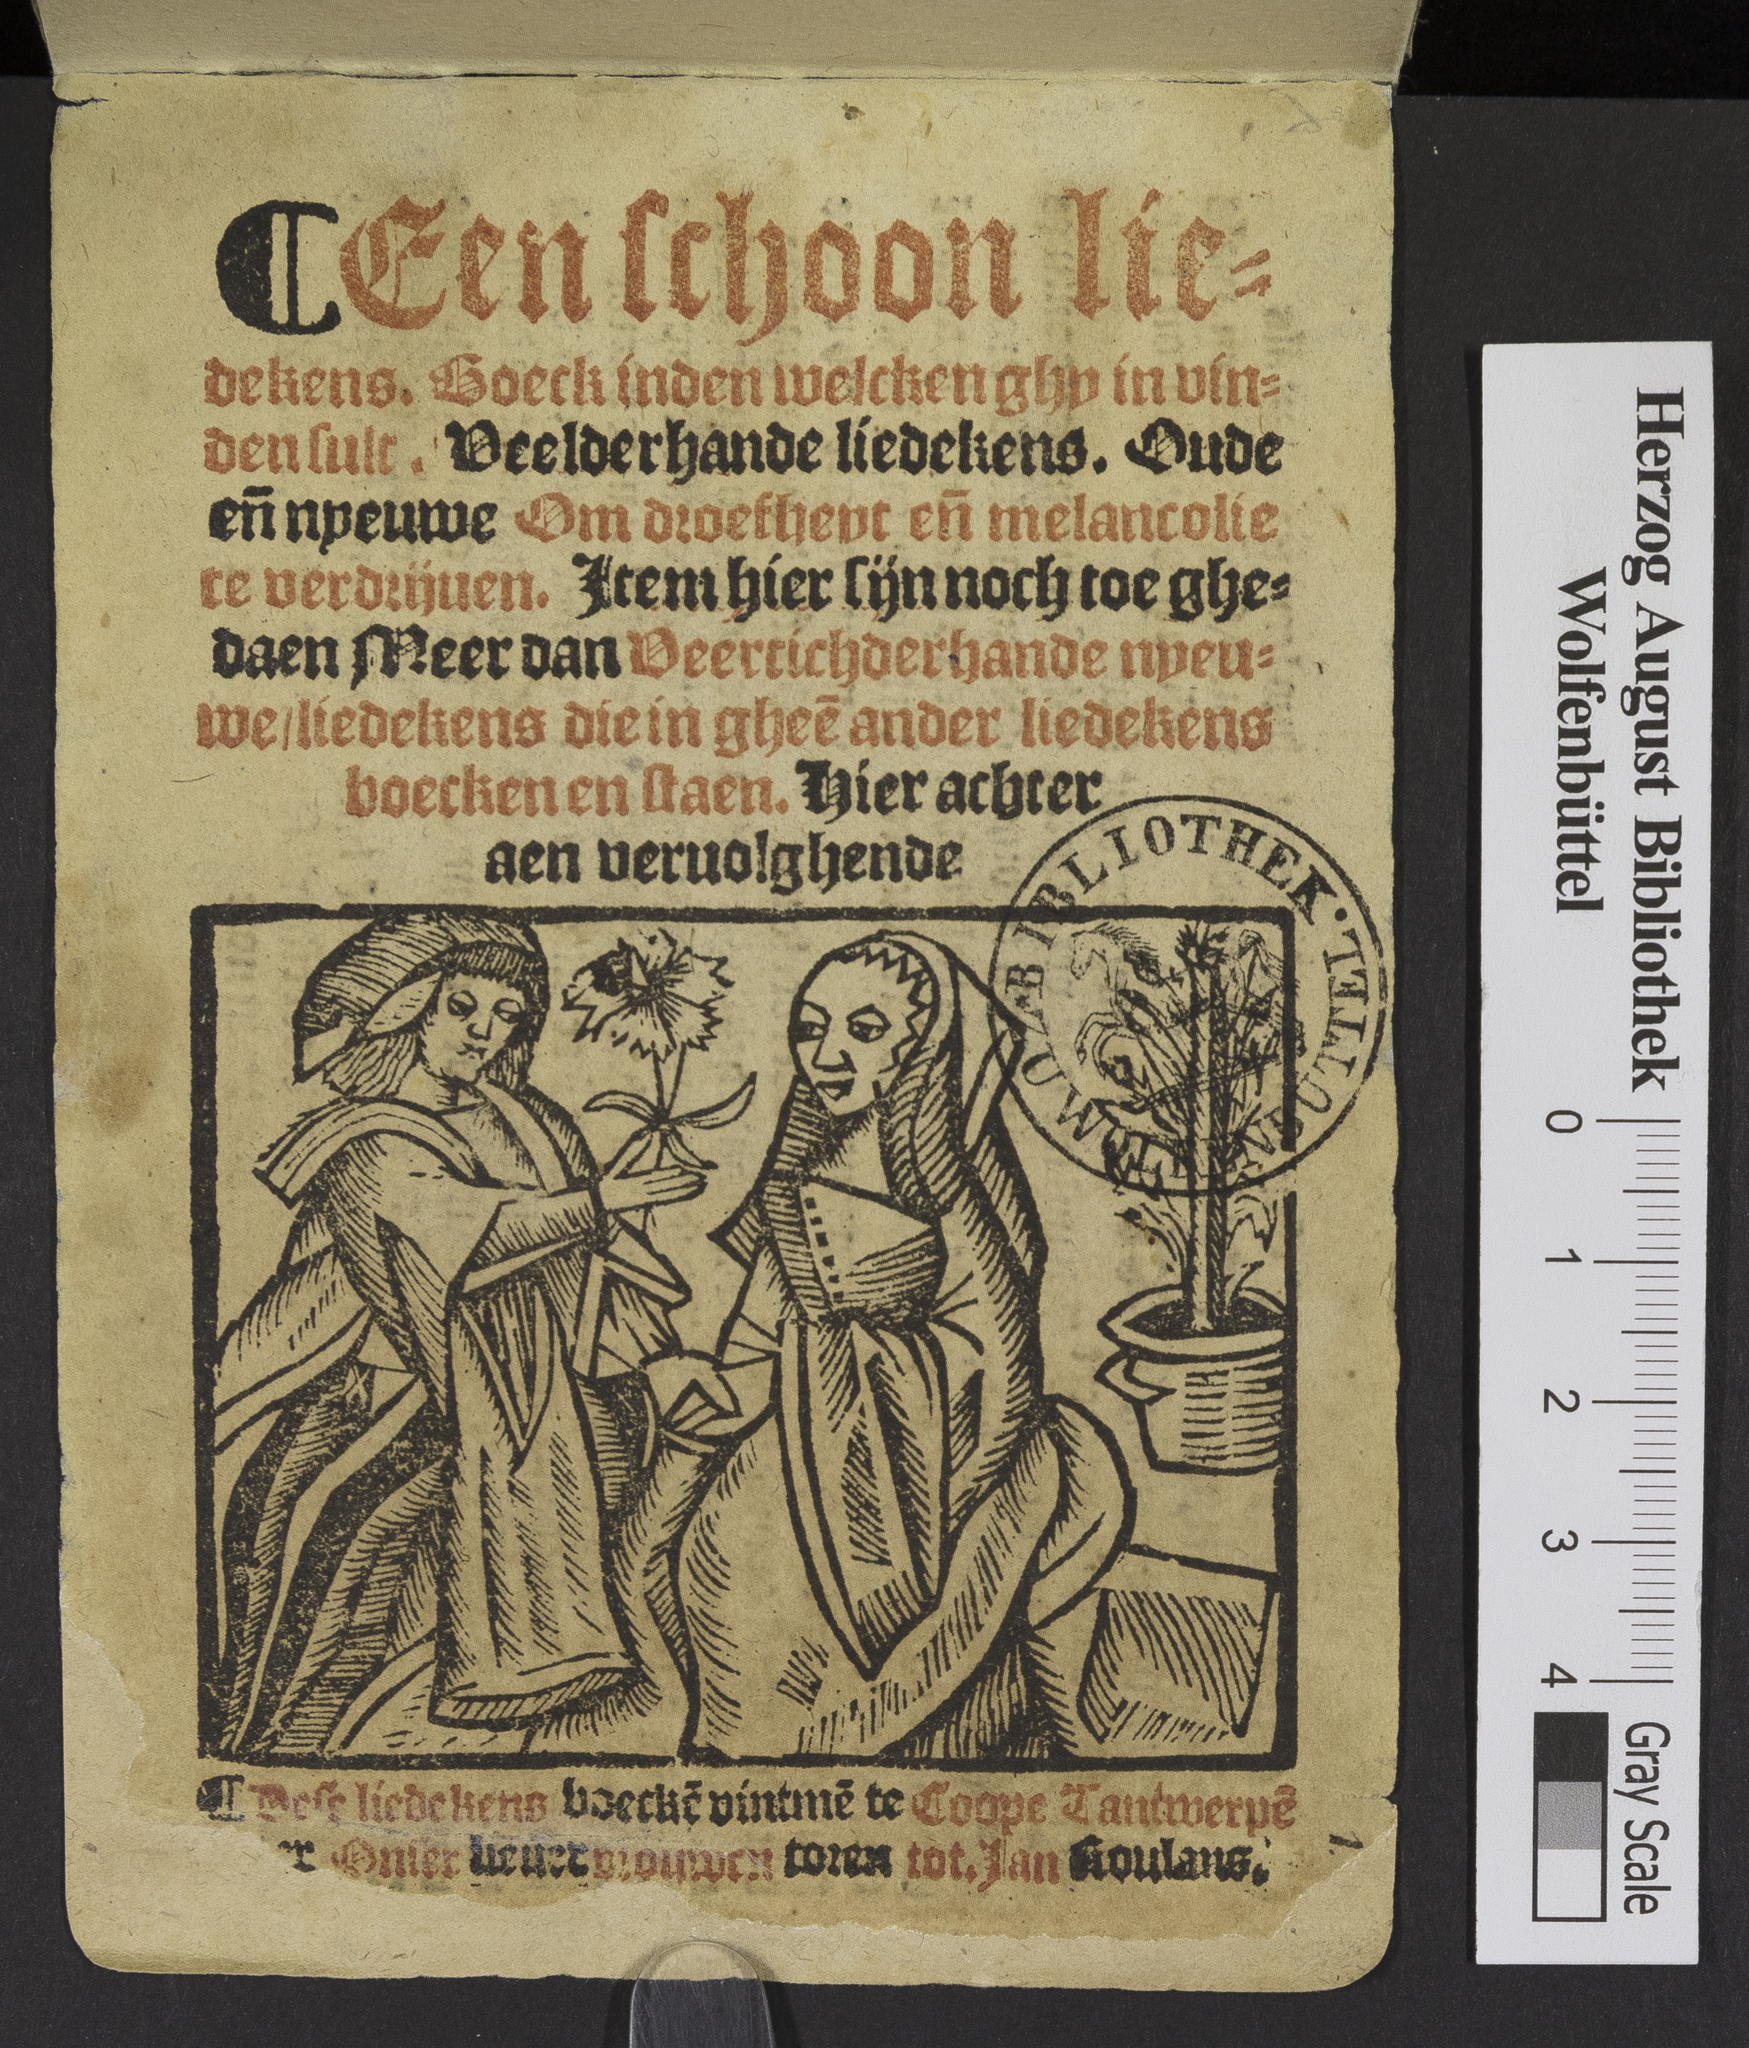 ⁋Een ſchoon lie⸗
dekens. Boeck inden welcken ghy in vin⸗
den ſult. Veelderhande liedekens. Oude
en̄ nyeuwe Om droefheyt en̄ melancolie
te verdrijuen. Item hier ſijn noch toe ghe⸗
daen Meer dan Veertichderhande nyeu⸗
we/liedekens die in gheē ander liedekens
boecken en ſtaen. Hier achter
aen veruolghende
BIBLIOTHEK.
⁋Deſe liedekens boeckē vintmē te Coope Tantwerpē
Onſer lieuer vrouwen toren tot. Jan Roulans.
Herzog August Bibliothek
Wolfenbüttel
0 1 2 3 4
Gray Scale